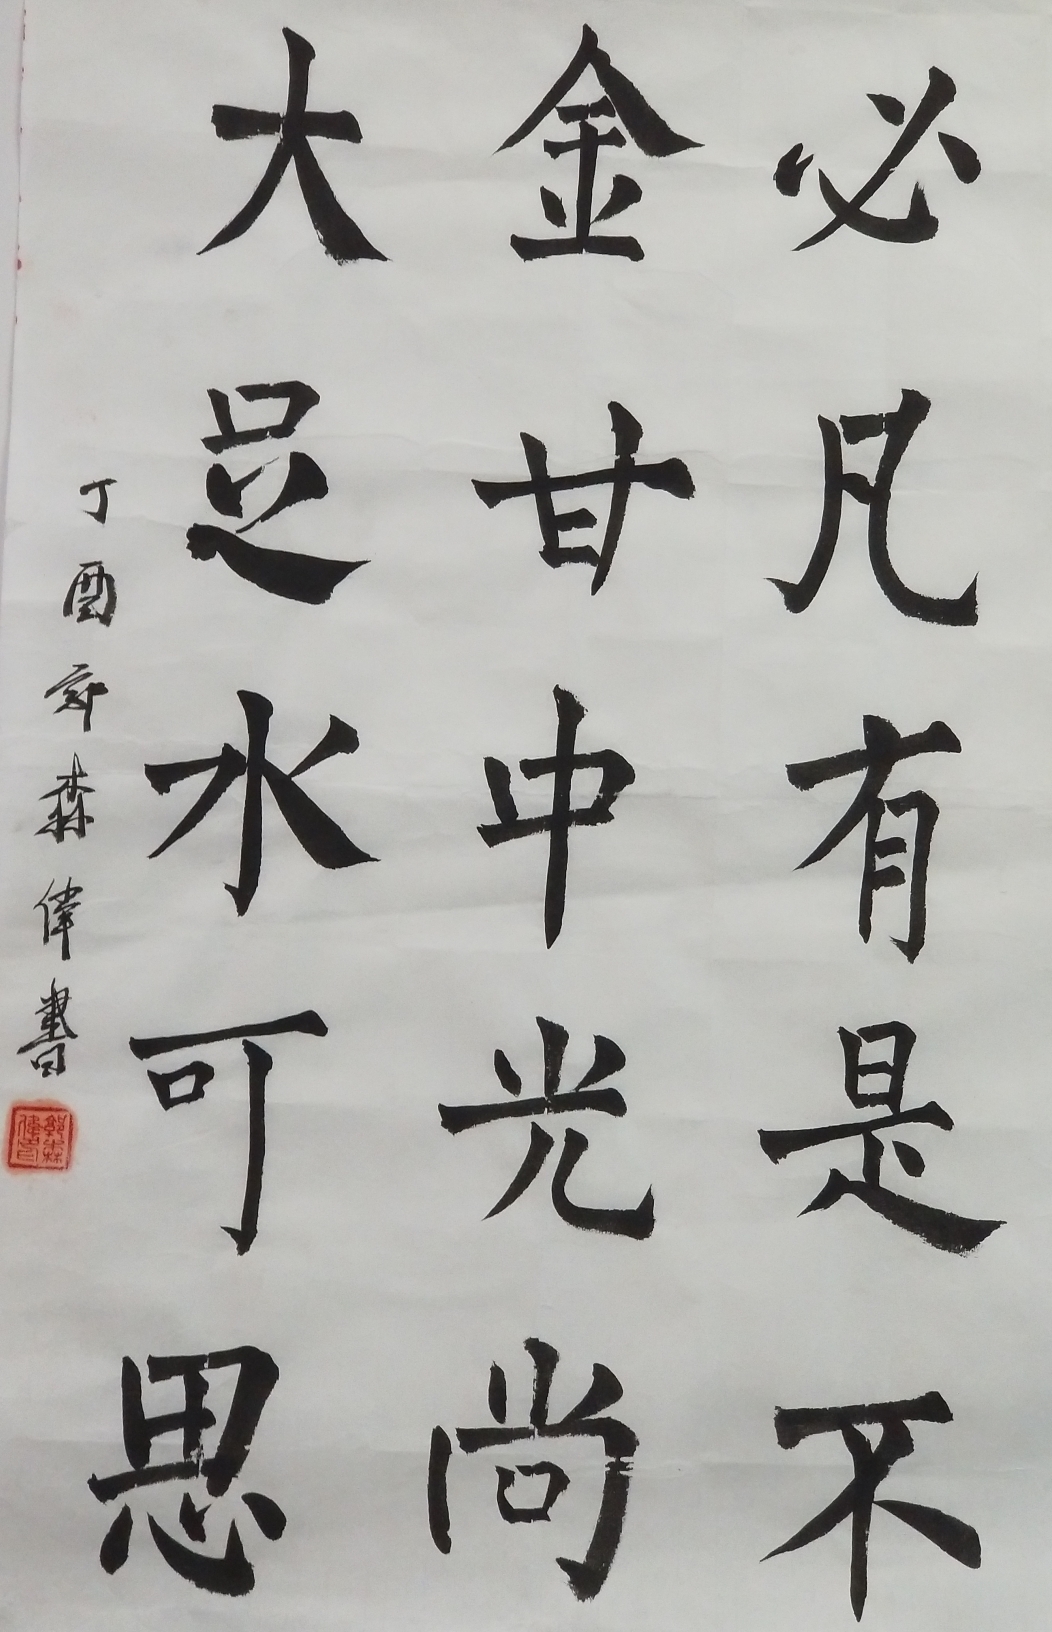 必凡有是不
金甘中光尚
大足水可思
丁酉郭森偉書